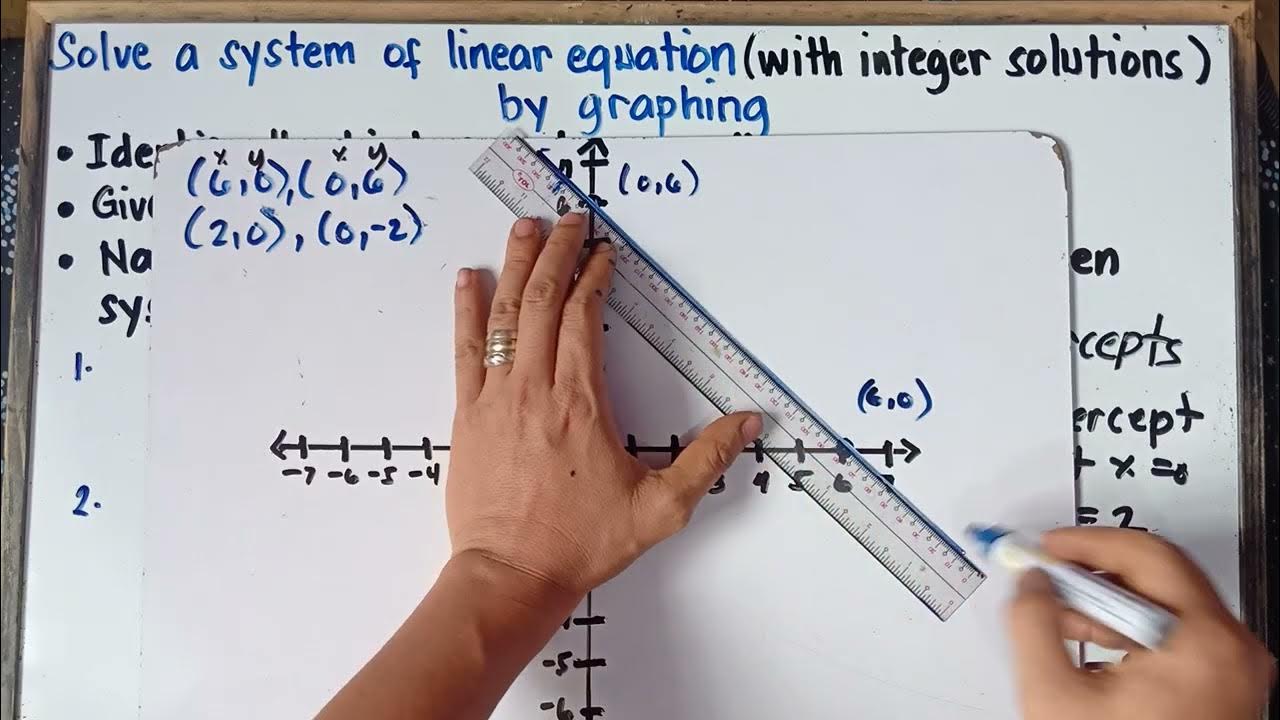 Solve a system of linear equation (with integer solutions)
by graphing
• Ide
x y x y
(6,0),(0,6) (0,6)
• Giv
(2,0), (0,-2)
• Na en
sys
1. cepts
(6,0)
ercept
-7 -6 -5 -4 3 4 5 6 x =0
2. = 2
-5
-6